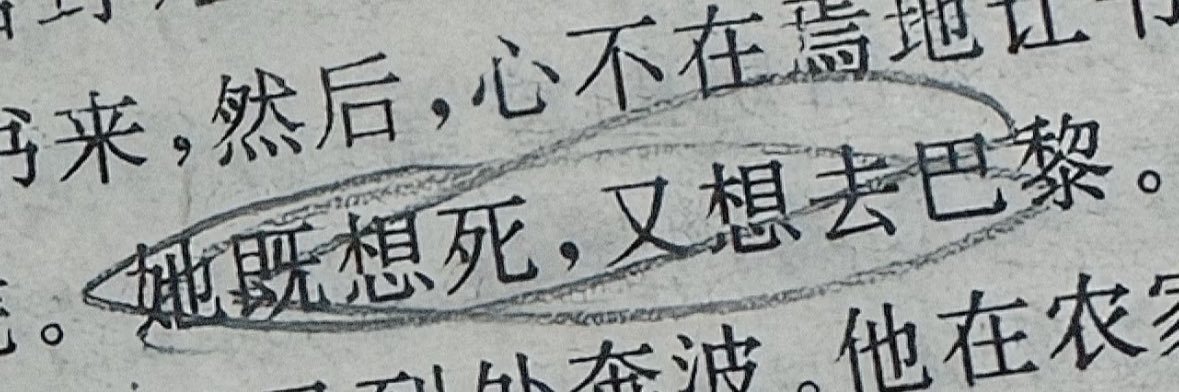 来,然后,心不在焉地让
。她既想死,又想去巴黎。
到处奔波。他在农家